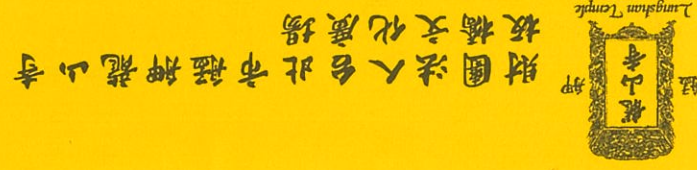 艋舺
龍山寺
Lungshan Temple
財團法人台北市艋舺龍山寺
板橋文化廣場